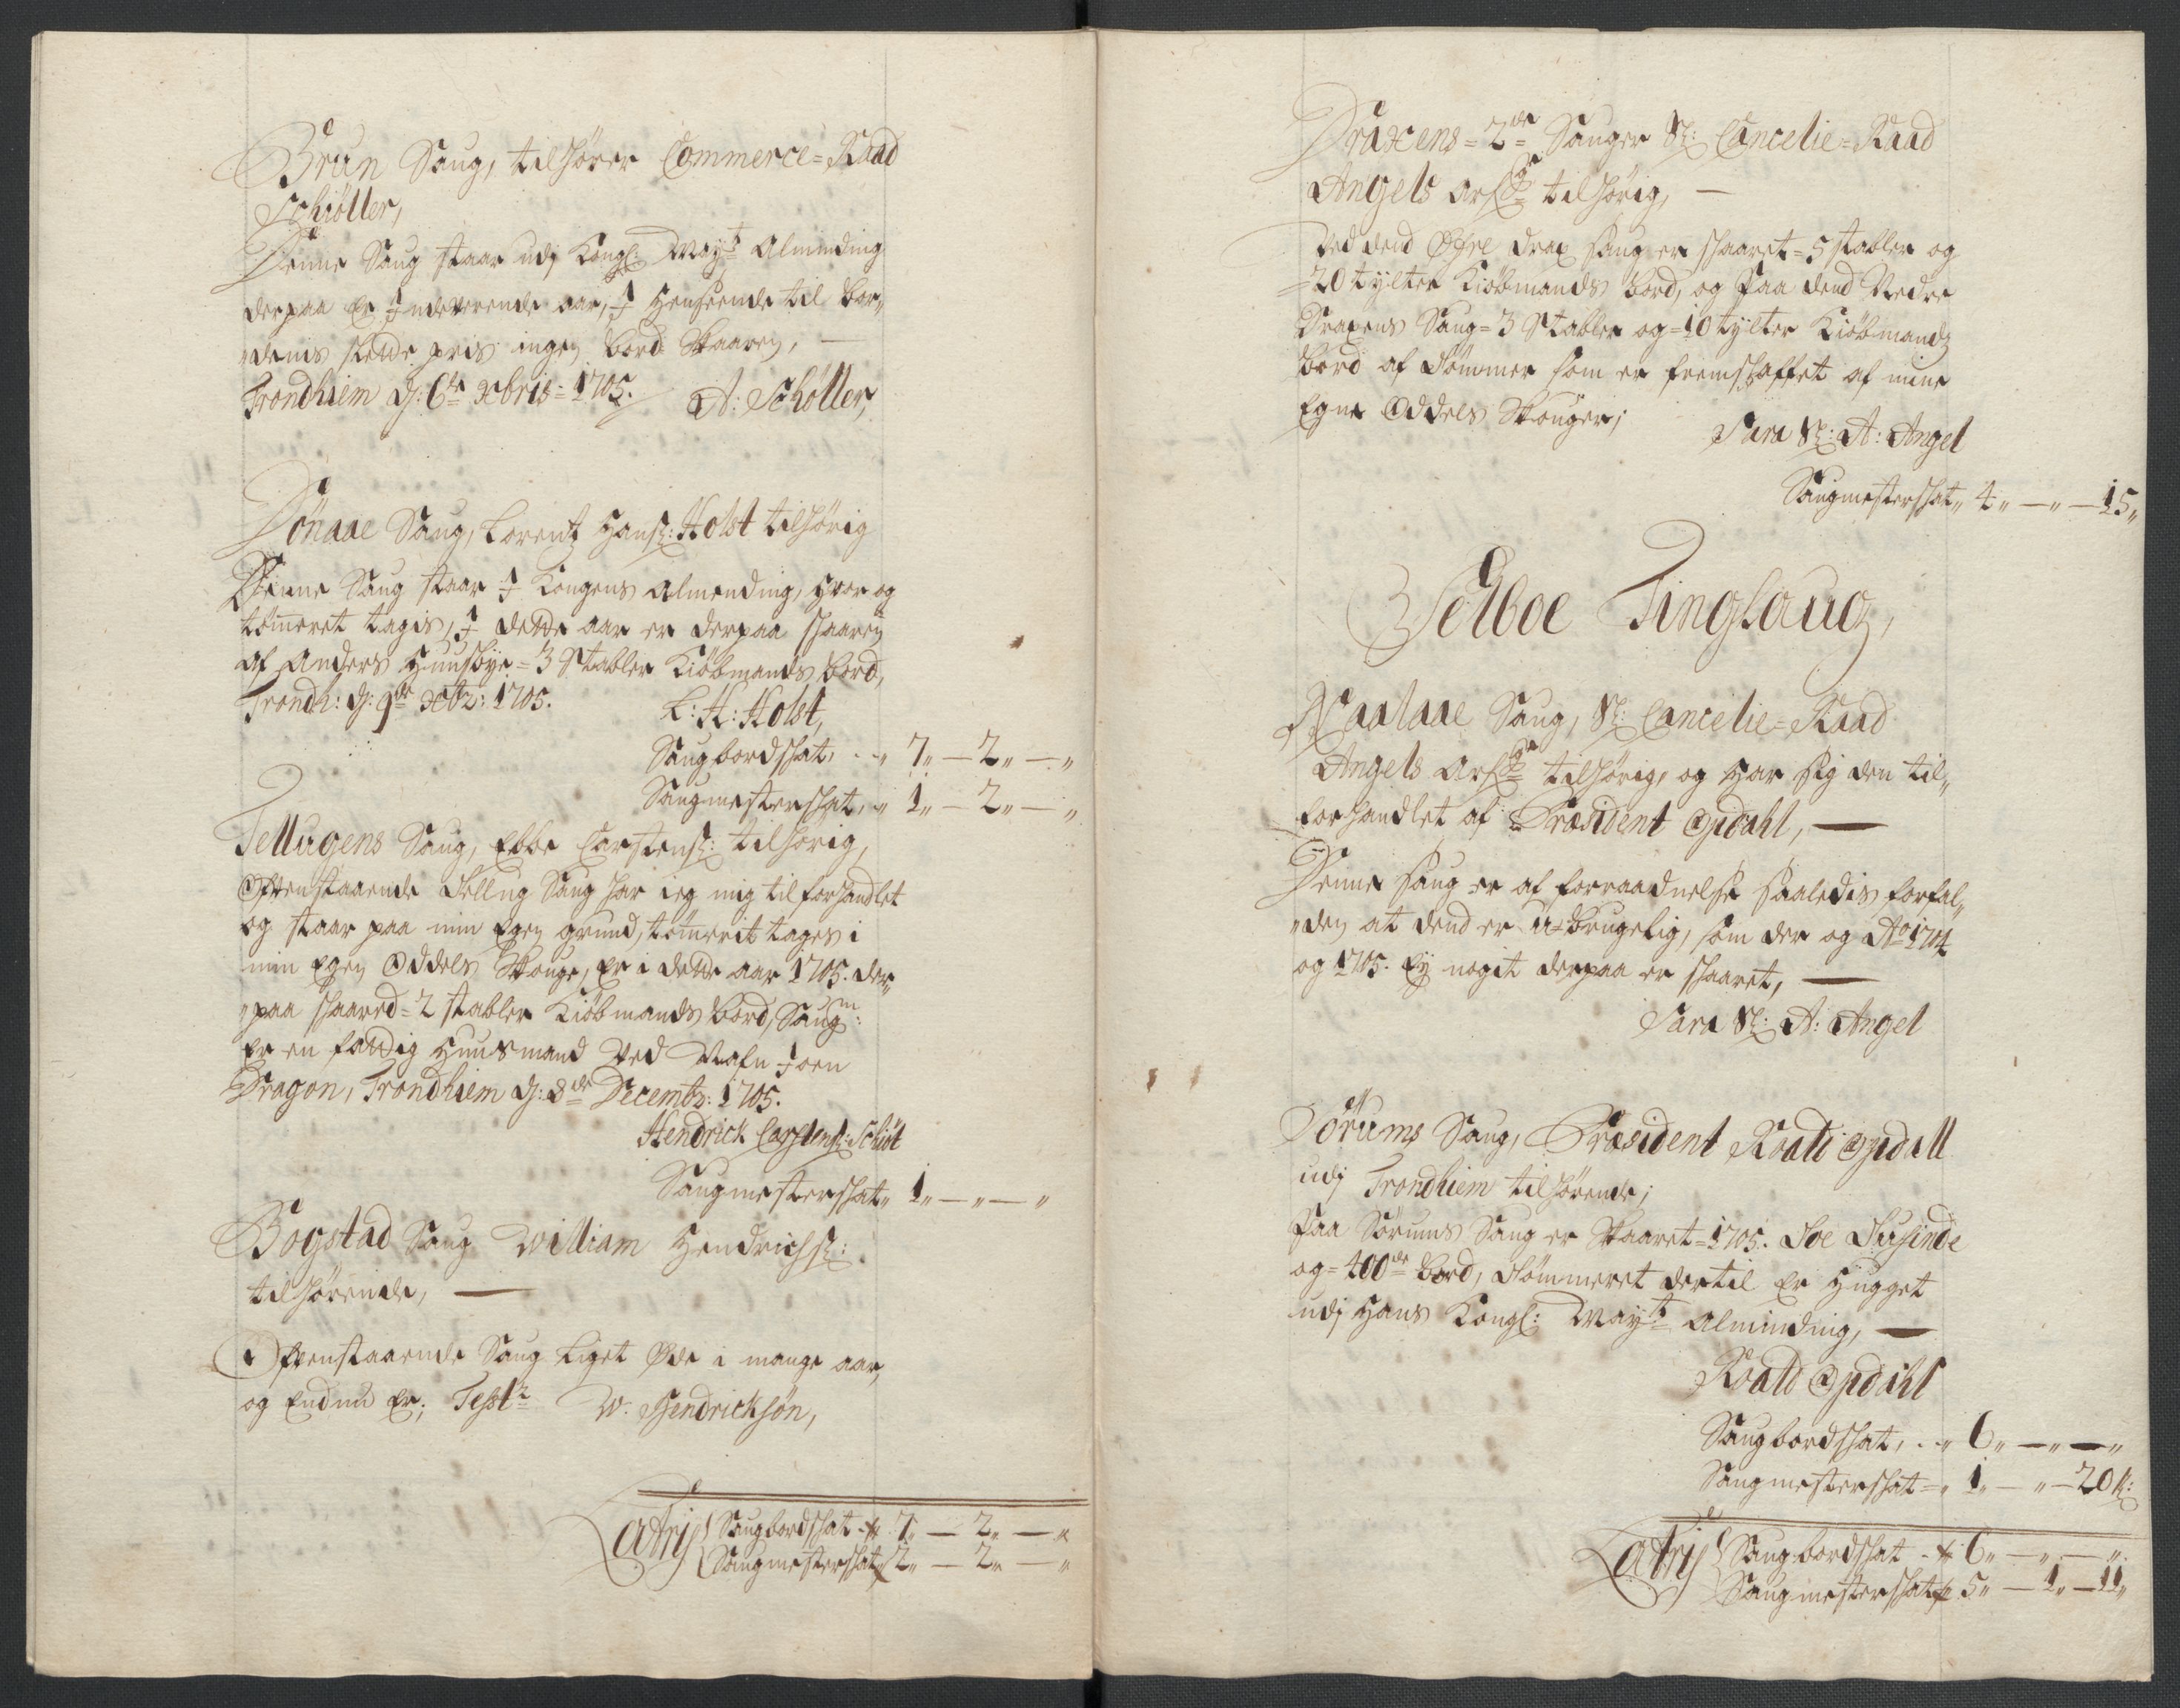 Brun Saug, tilhører Commerce-Raad
Schiøller,
Denne Saug staar udj Kongl: May:ts Alminding
derpaa er Indeværende aar, I Henseende til bor-
denis slette pris ingen bord Skaaren,
Trondhiem d: 6te xbris 1705. A: Schøller,
Sönaae Saug, Lorentz Hansz: Holst tilhörig
Denne Saug staar I Kongens Almending, hvor og
tömeret tagis, I dette aar er derpaa skaaren
af Anders Huusbye = 3 Stabler Kiöbmands bord,
Trondh: d: 9de xbr: 1705.
L: H: Holst,
Saugbordskat, „ 7„ — 2„ — „
Saugmesterskat, „ 1„ — 2„ — „
Tellugens Saug, Ebbe Carstensz: tilhörig,
Ofvenstaaende Tellug Saug har ieg mig tilforhandlet
og staar paa min Egen grund, tömerit tages i
min Egen Oddels Skouge, Er i dette aar 1705. der-
„paa skaared = 2 stabler Kiöbmands bord, Saugm:
Er en fattig Huusmand ved Nafn Joen
Dragon, Trondhiem d: 8de Decembr: 1705.
Hendrick Carstensz: Schiöt
Saugmesterskat„ 1„ — „ — „
Bogstad Saug William Hendrichsz:
tilhörende, —
Ofvenstaaende Saug Liget Øde i mange aar,
og Endnu Er; Test: W: Hendricksøn,
Latris Saugbordskat - 7„ — 2„ — „
Saugmesterskat 2„ — 2„ — „
Draxens = 2de Sauger Sl: Cancelie-Raad
Angels Arf:ge tilhörig, —
Ved dend Øfre Drax Saug er skaaret = 5 stabler og
= 20 tylter Kiöbmands bord, og Paa dend Nedre
Draxens Saug = 3 Stabler og = 10 tylter Kiöbmandz
bord af Tömmer som er fremskaffet af mine
Egne Oddels Skouger;
Sara Sl: A: Angel
Saugmesterskat„ 4„ — „ — 15„
Selboe Tinglaug,
Kaalaae Saug, Sl: Cancelie-Raad
Angels Arf:ge tilhörig, og har sig den til-
forhandlet af Præsident Opdahl, —
Denne Saug er af forraadnelse saaledis forfal-
„den at dend er u-brugelig, som der og Ao 1704
og 1705. Ey nogit derpaa er skaaret, —
Sara Sl: A: Angel
Sörums Saug, Præsident Roald Opdall
udj Trondhiem tilhörende;
Paa Sörums Saug er Skaaret = 1705. Toe Tusinde
og = 400de bord, Tömmeret dertil Er Hugget
udj Hans Kongl: May:ts Alminding, —
Roald Opdahl
Saugbordskat, . „ 6„ — „ — „
Saugmesterskat = „ 1„ — „ — 20 s:
Latris Saugbordskat - 6„ — „ — „
Saugmesterskat 5„ — 1„ — 11„